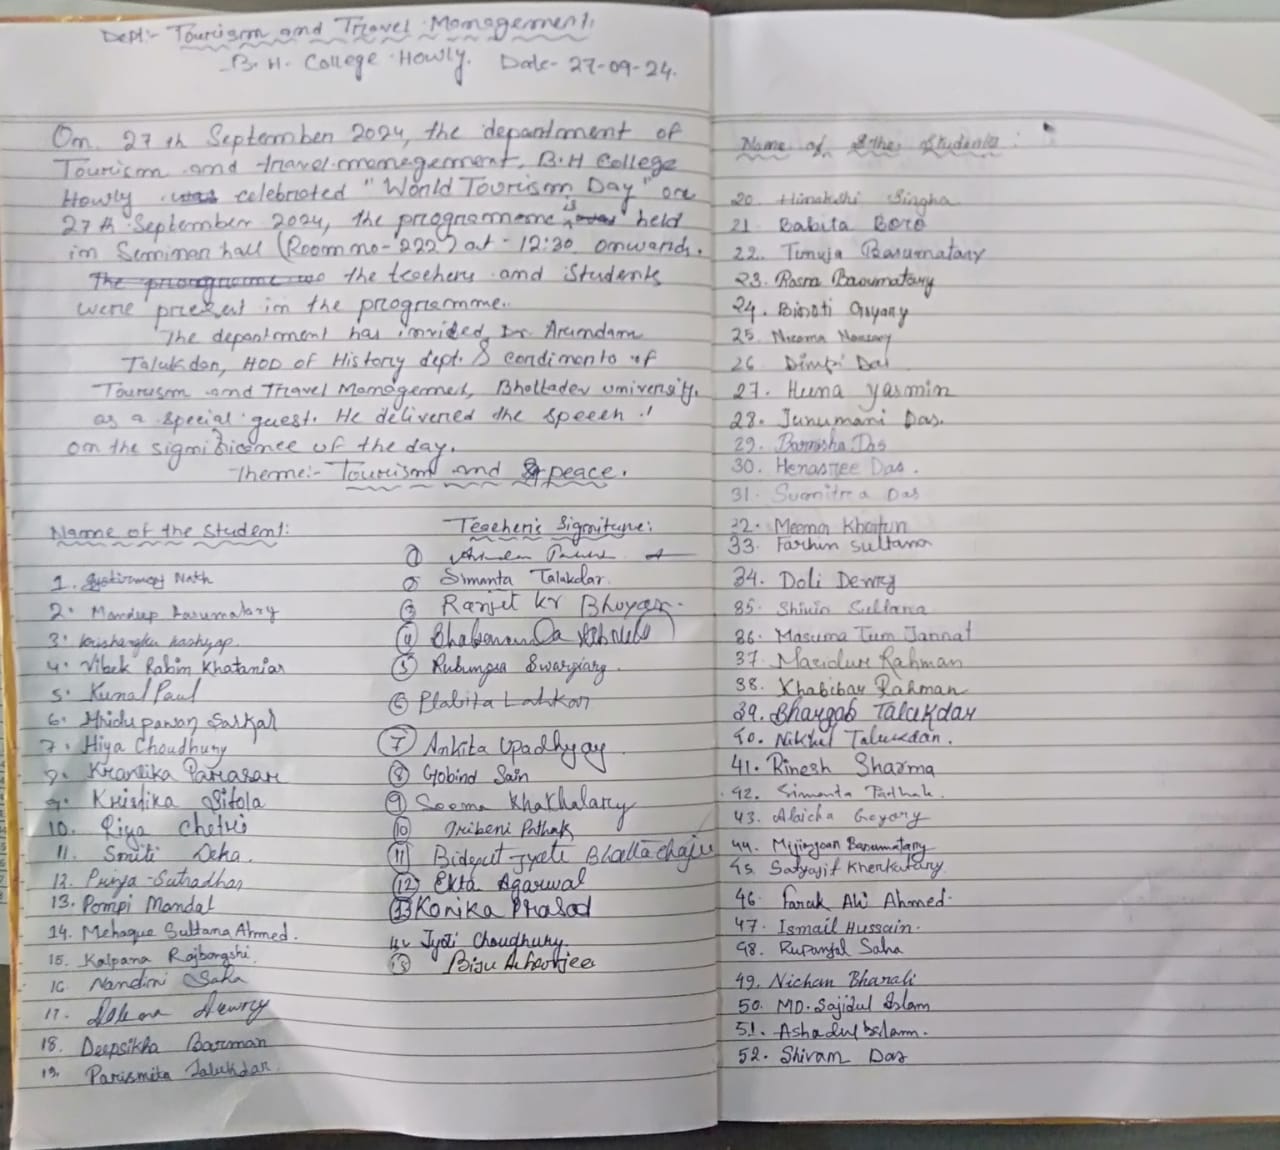 Dept:- Tourism and Travel Management.
B.H. College Howly. Date- 27-09-24.
On 27 th September 2024, the department of
Tourism and travel menegement, B.H College
Howly celebrated "World Tourism Day" on
27 th September 2024, the programme is held
in Seminar hall (Room no-'222') at - 12:30 onwards.
The programme the teachers and Students
were present in the programme.
The department has invided Dr. Arundam
Talukdar, HOD of History dept. & cordinento of
Tourism and Travel Management, Bhattadev university.
as a special guest. He delivered the speech
on the significance of the day.
Theme:- Tourism and peace.
Name of the Student:
1. Nath
2. Mandeep Basumatary
3. kashyap
4. Vibek Rabin Khataniar
5. Kunal Paul
6. Mridupawan Sarkar
7. Hiya Choudhury
8. Krantika Parasar
9. Kristika Sitola
10. Riya Chetri
11. Smiti Deka.
12. Priya Sutradhar
13. Pompi Mandal
14. Mehaque Sultana Ahmed.
15. Kalpana Rajbongshi.
16. Nandini Saha
17. Dewry
18. Deepsikha Barman
19. Parismita Talukdar
Teacher's Signiture:
①
② Simanta Talukdar.
③ Ranjet kr Bhuyan.
④
⑤ Rubungsa Swargiary.
⑥ Plabita Lahkar
⑦ Ankita Upadhyay
⑧ Gobind Sain
⑨ Seema Khakhalary
⑩ Tribeni Pathak
⑪ Jyoti Bhattachajee
⑫ Ekta Agarwal
⑬ Konika Prasad
14. Jyoti Choudhury.
⑮ Biju
Name of the Students:
20. Himakshi Singha
21. Babita Boro
22. Tunuja Basumatary
23. Rasna Basumatary
24. Goyary
25. Narzary
26. Dimpi Das
27. Husna Yasmin
28. Junumani Das.
29. Barnisha Das
30. Henasree Das.
31. Sumitra Das
32. Meena Khatun
33. Farhin Sultana
34. Doli Dewry
35. Shirin Sultana
36. Masuma Tum Jannat
37. Maridur Rahman
38. Khabibar Rahman
39. Bhargab Talukdar
40. Nikhil Talukdar.
41. Rinesh Sharma
42. Simanta Pathak.
43. Alaicha Goyary
44. Mijingsan Basumatary
45. Satyajit Kherkatary
46. Faruk Ali Ahmed.
47. Ismail Hussain.
48. Rupanjal Saha
49. Nichan Bharali
50. MD. Sajidul Islam
51. Ashadul Islam.
52. Shivam Das